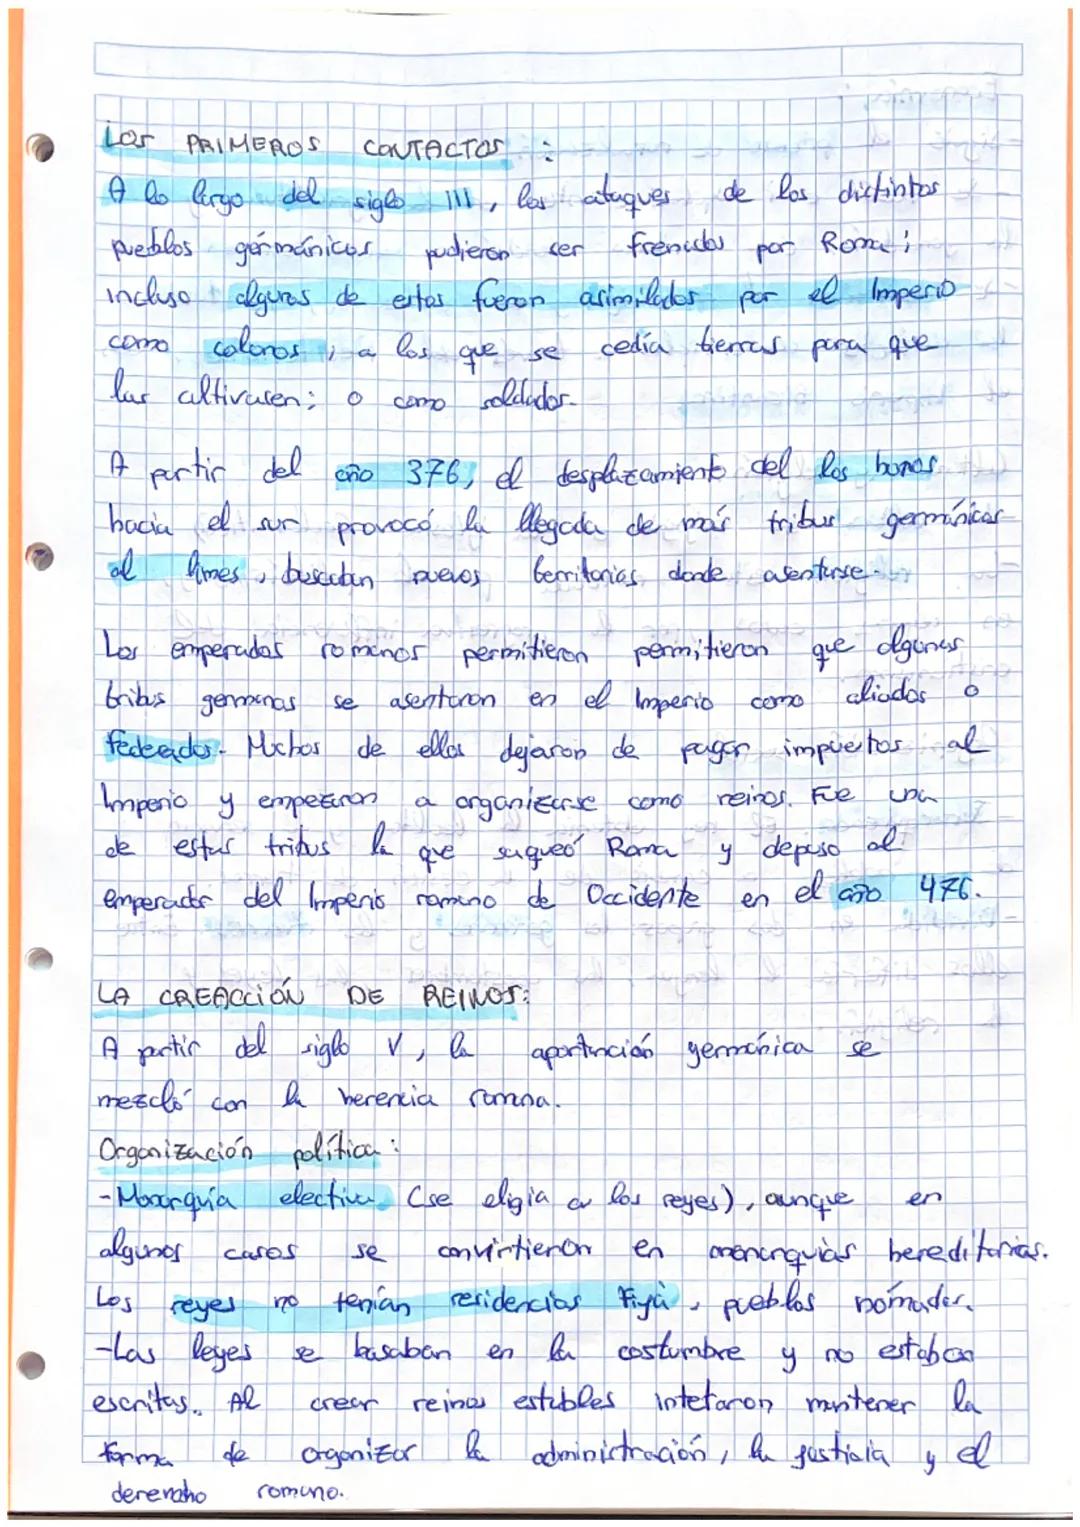 Los PRIMEROS CONTACTOS :
A lo largo del siglo III, los ataques de los distintos
pueblos germánicos pudieron ser frenados por Roma;
incluso algunos de estos fueron asimilados por el Imperio
como colonos, a los que se cedía tierras para que
las cultivasen; o como soldados.
A partir del año 376, el desplazamiento del los hunos
hacia el sur provocó la llegada de más tribus germánicas
al limes, buscaban nuevos territorios donde asentarse.
Los emperadas romanos permitieron permitieron que algunas
tribus germanas se asentaron en el Imperio como aliados o
federados. Muchos de ellos dejaron de pagar impuestos al
Imperio y empezaron a organizarse como reinos. Fue una
de estas tribus la que saqueó Roma y depuso al
emperador del Imperio romano de Occidente en el año 476.
LA CREACCIÓN DE REINOS:
A partir del siglo V, la aportanción germánica se
mezcló con la herencia romana.
Organización política:
-Monarquía electiva (se eligia a los reyes), aunque en
algunos casos se convirtieron en monarquías hereditarias.
Los reyes no tenían residencias fija, pueblos nómadas.
-Las leyes se basaban en la costumbre y no estaban
escritas. Al crear reinos estables intetaron mantener la
forma de organizar la administración, la justicia y el
romano.